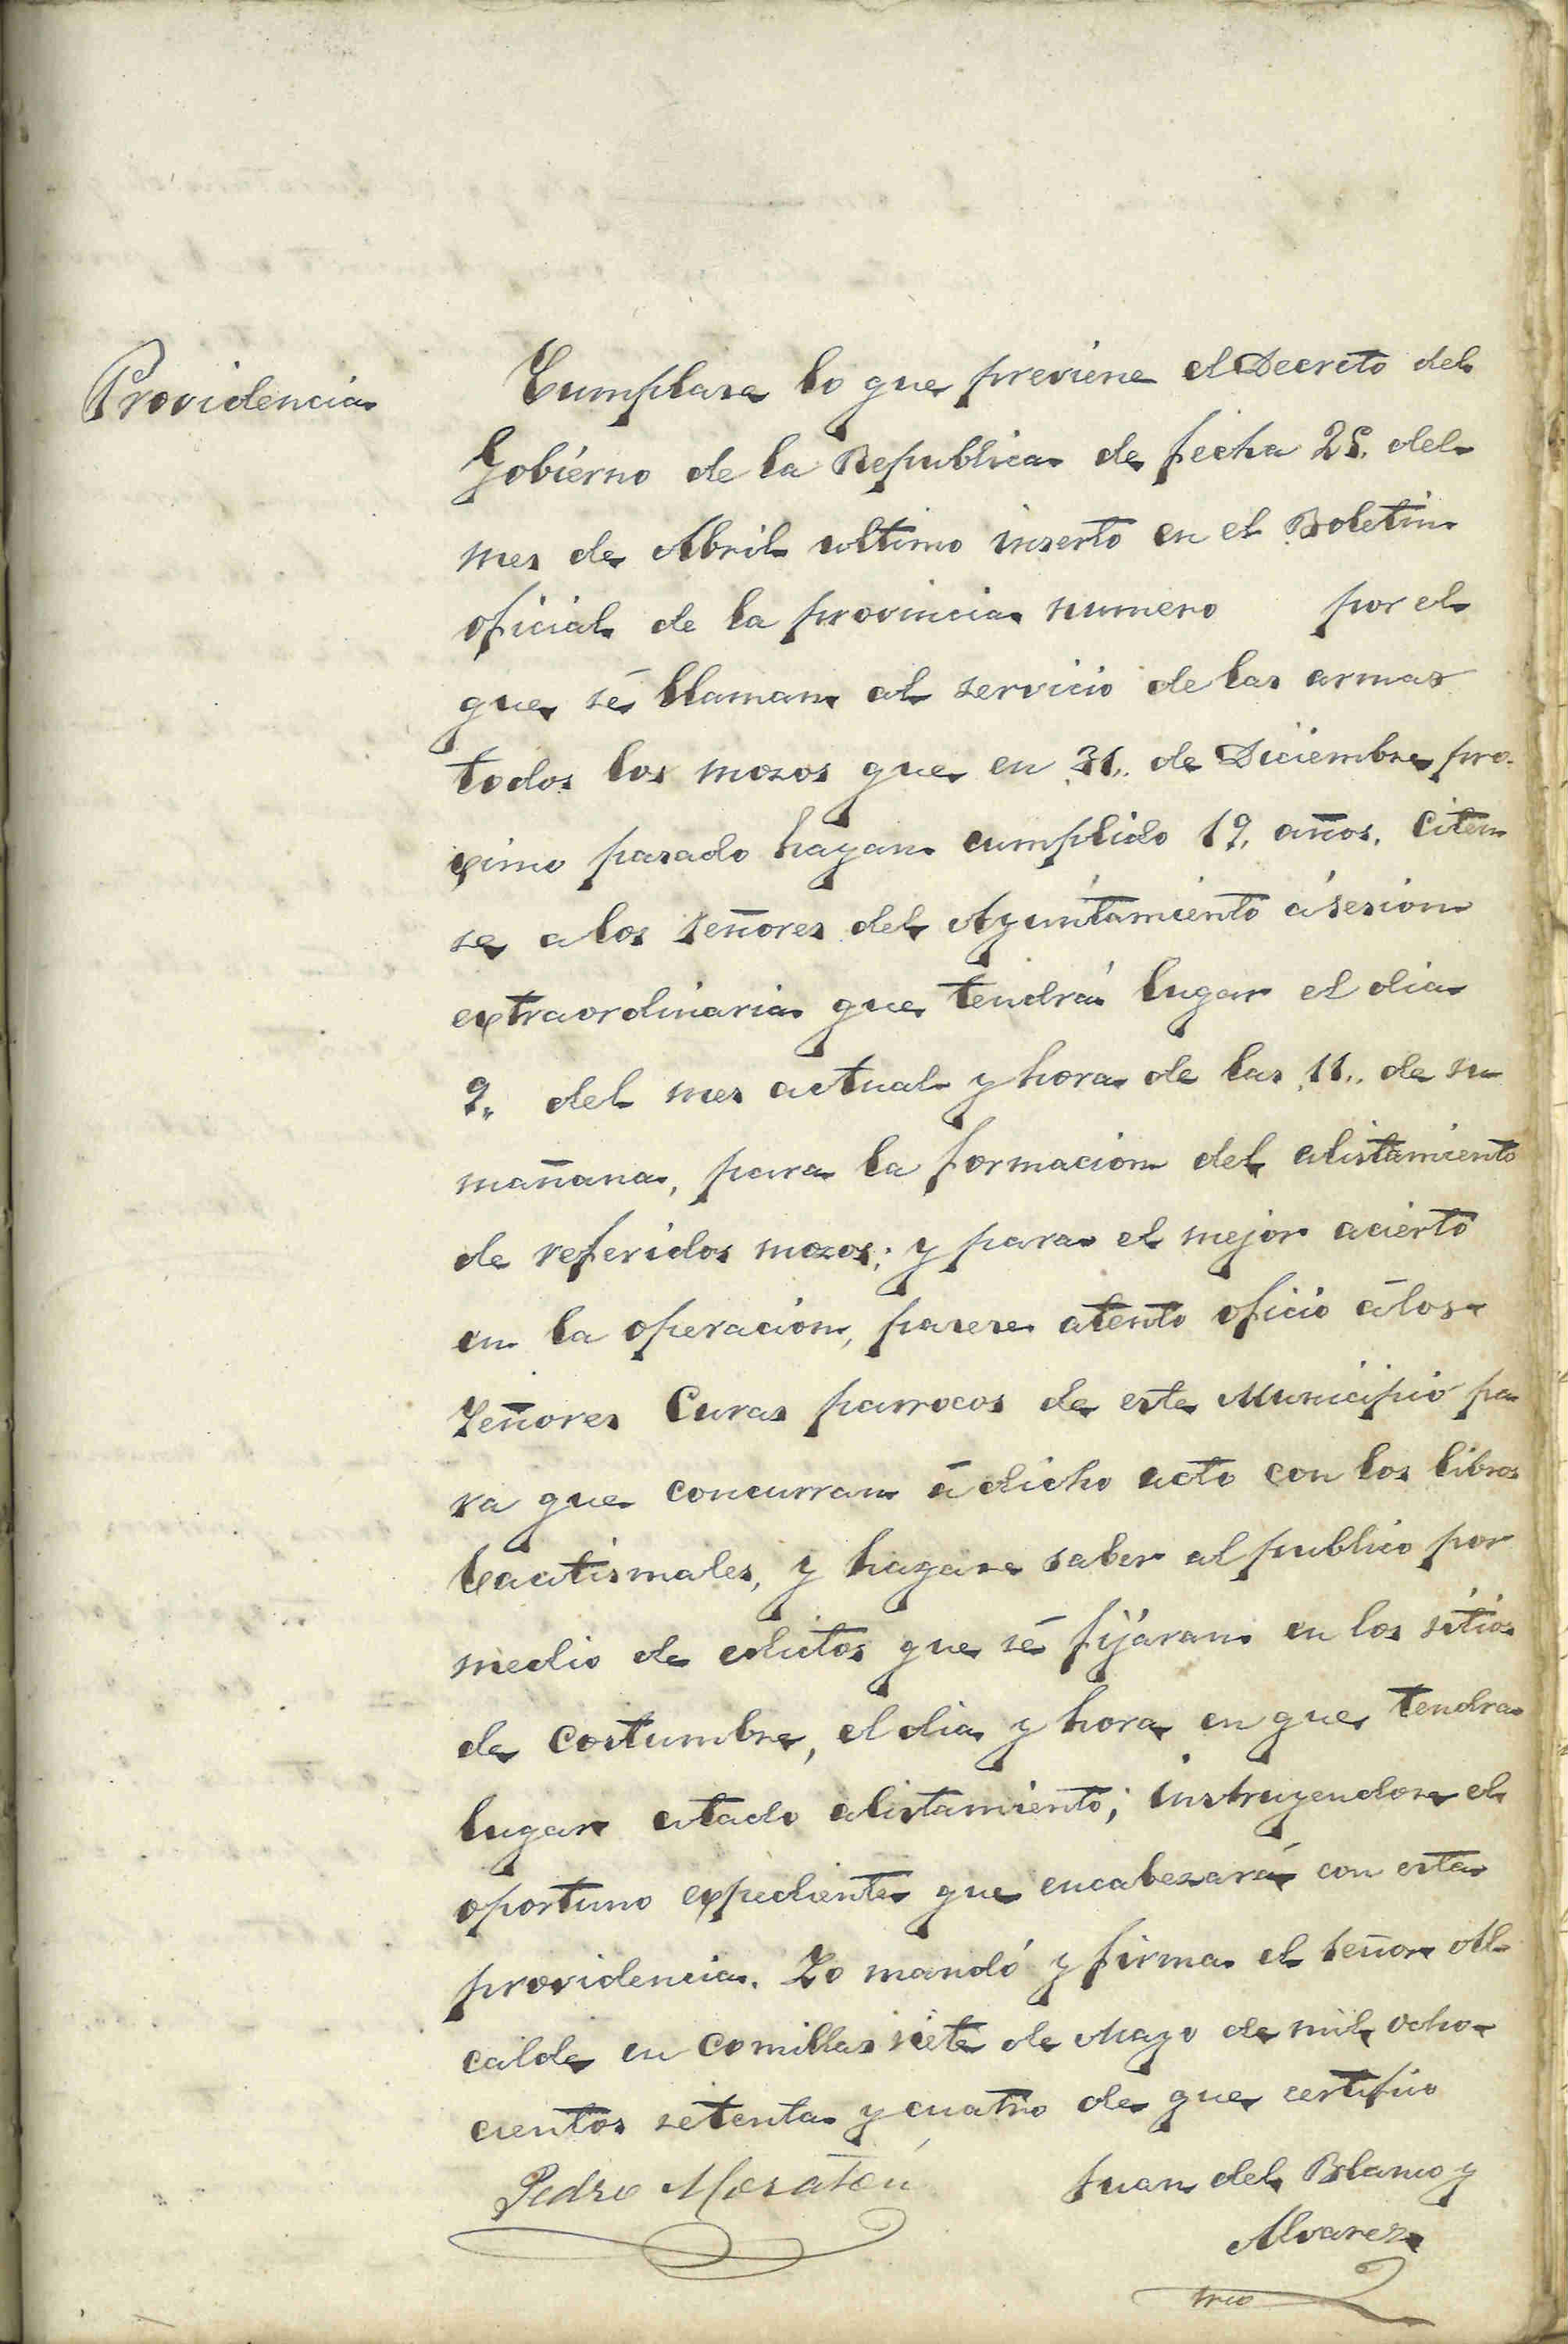 Providencia
Cumplase lo que previene el Decreto del
Gobierno de la Republica de fecha 25. del
mes de Abril ultimo inserto en el Boletin
oficial de la provincia numero por el
que sé llaman al servicio de las armas
todos los mozos que en 31,, de Diciembre pro-
ximo pasado hayan cumplido 19, años. Citen
se a los señores del Ayuntamiento á sesion
extraordinaria que tendrá lugar el dia
9,, del mes actual y hora de las 11,, de su
mañana, para la formacion del alistamiento
de referidos mozos; y para el mejor acierto
en la operacion, pasese atento oficio á los
Señores Curas parrocos de este Municipio pa
ra que concurran á dicho acto con los libros
bautismales, y hagase saber al publico por
medio de edictos que sé fijáran en los sitios
de costumbre, el dia y hora en que tendra
lugar citado alistamiento; instruyendose el
oportuno expediente que encabezará con esta
providencia. Lo mandó y firma el señor Al-
calde en Comillas siete de Mayo de mil ocho-
cientos setenta y cuatro de que certifico
Pedro Moratón
Juan del Blanco y
Alvarez
srio